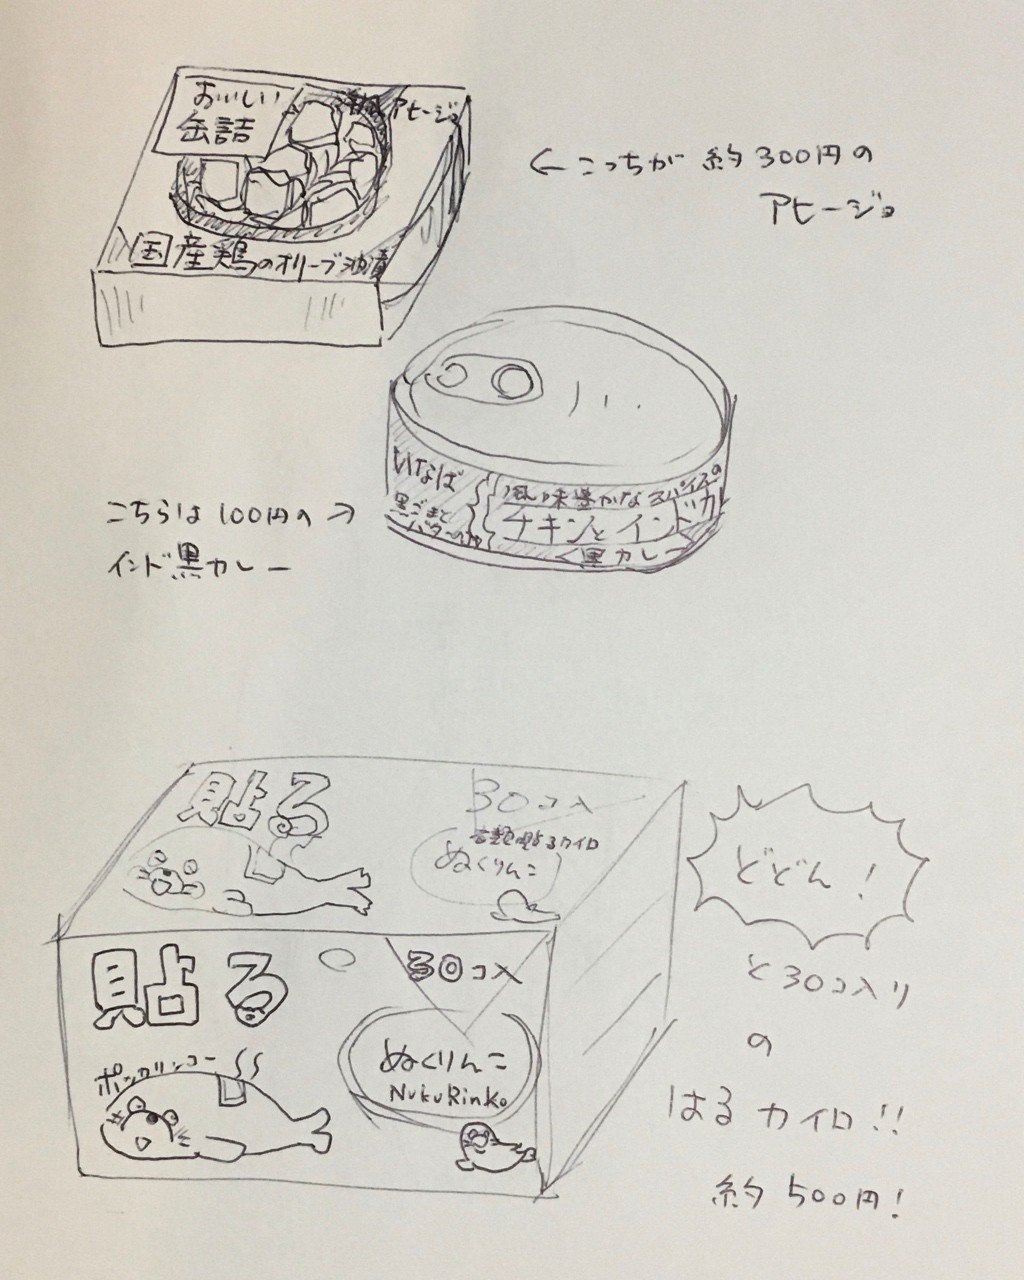 おいしい
缶詰
アヒージョ
国産鶏のオリーブ油漬
←こっちが 約300円の
アヒージョ
いなば
黒ごまと
バター
風味豊かなスパイスの
チキンとインドカ
黒カレー
こちらは100円の→
インド黒カレー
貼る
30コ入
衣類に貼るカイロ
ぬくりんこ
貼る
30コ入
ポッカリンコー
ぬくりんこ
NukuRinko
どどん!
と30コ入り
の
はるカイロ!!
約500円!